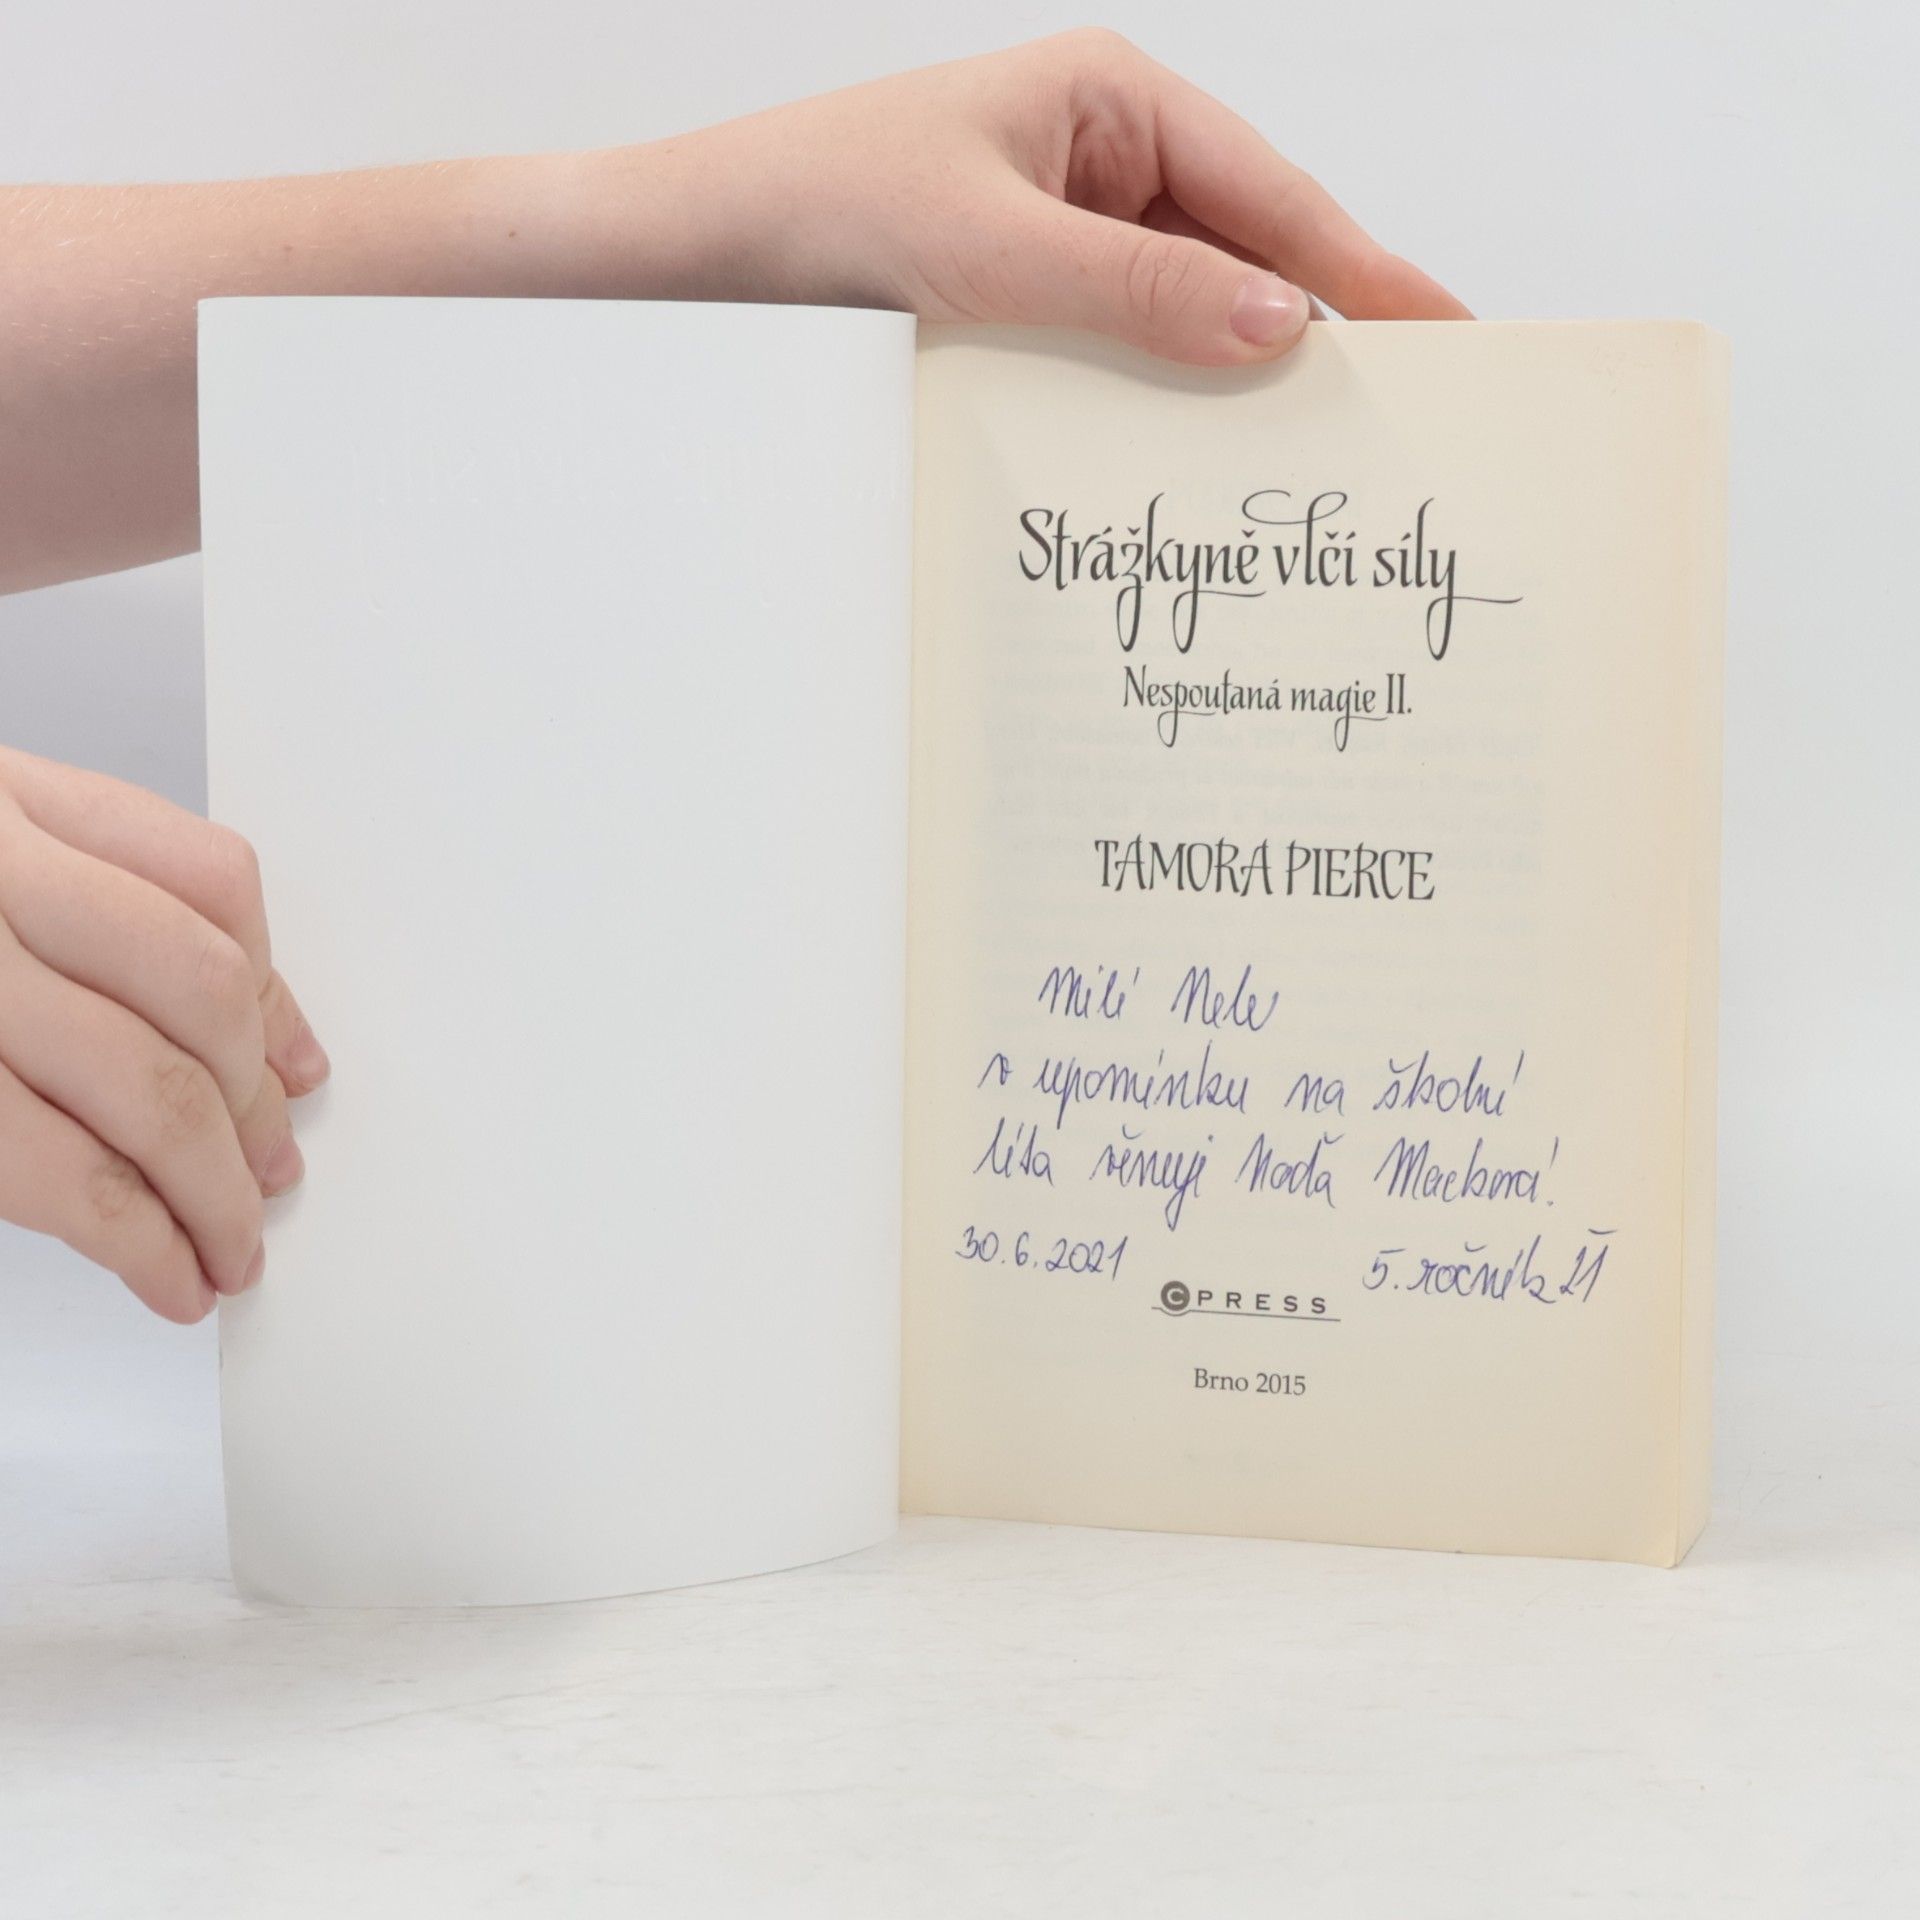 Strážkyně vlčí síly
Nespoutaná magie II.
TAMORA PIERCE
Milé Nele
v upomínku na školní
léta věnuje Naďa Macková!
30.6.2021
5. ročník ZŠ
CPRESS
Brno 2015